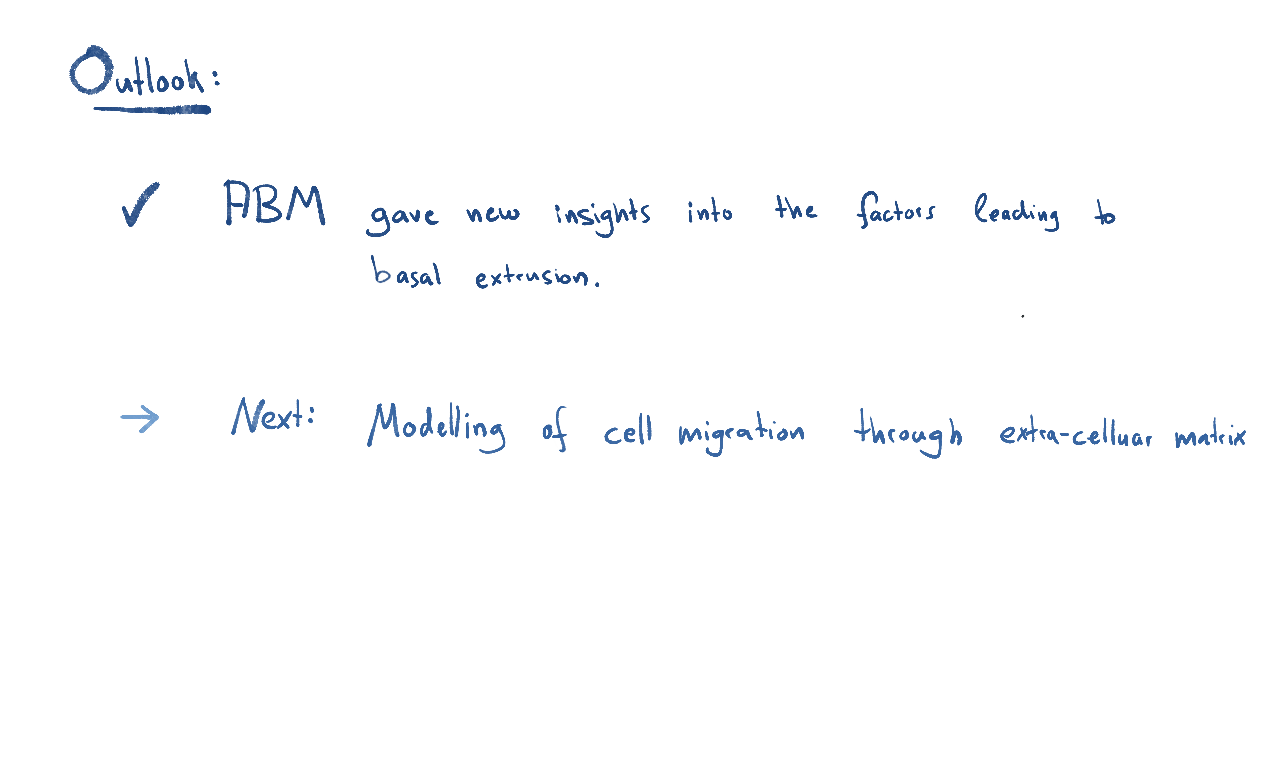 Outlook:
✓ ABM gave new insights into the factors leading to
basal extrusion.
→ Next: Modelling of cell migration through extra-celluar matrix